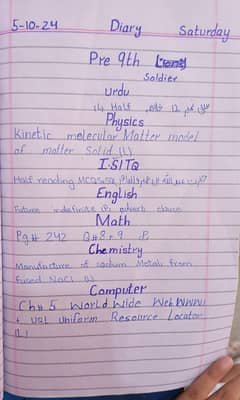 5-10-24 Diary Saturday
Pre 9th
Soldier
Urdu
Half 12
Physics
Kinetic molecular Matter model
of matter Solid (L)
I.S/T.Q
Half reading MCQs, SQ
English
Future indefinite (P) adverb clause
Math
Pg# 242 Q#8,9 P.
Chemistry
Manufacture of sodium Metal from
fused NaCl (L)
Computer
Ch# 5 World Wide Web WWW
+ URL Uniform Resource Locator
(L)